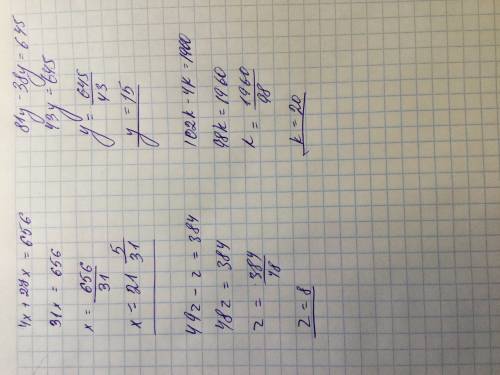 4x + 27x = 656
31x = 656
x = 656/31
x = 21 5/31
81y - 38y = 645
43y = 645
y = 645/43
y = 15
49z - z = 384
48z = 384
z = 384/48
z = 8
102k - 4k = 1960
98k = 1960
k = 1960/98
k = 20